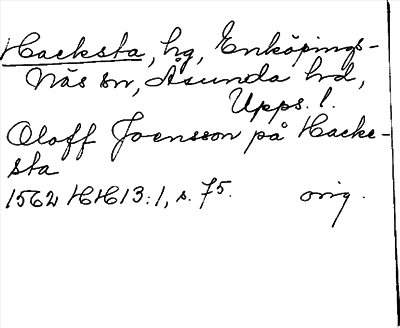 Hacksta, hg, Enköpings-
Näs sn, Åsunda hrd,
Upps. l.
Oloff Joensson på Hacke-
sta
1562 HH13:1, s. 75. orig.